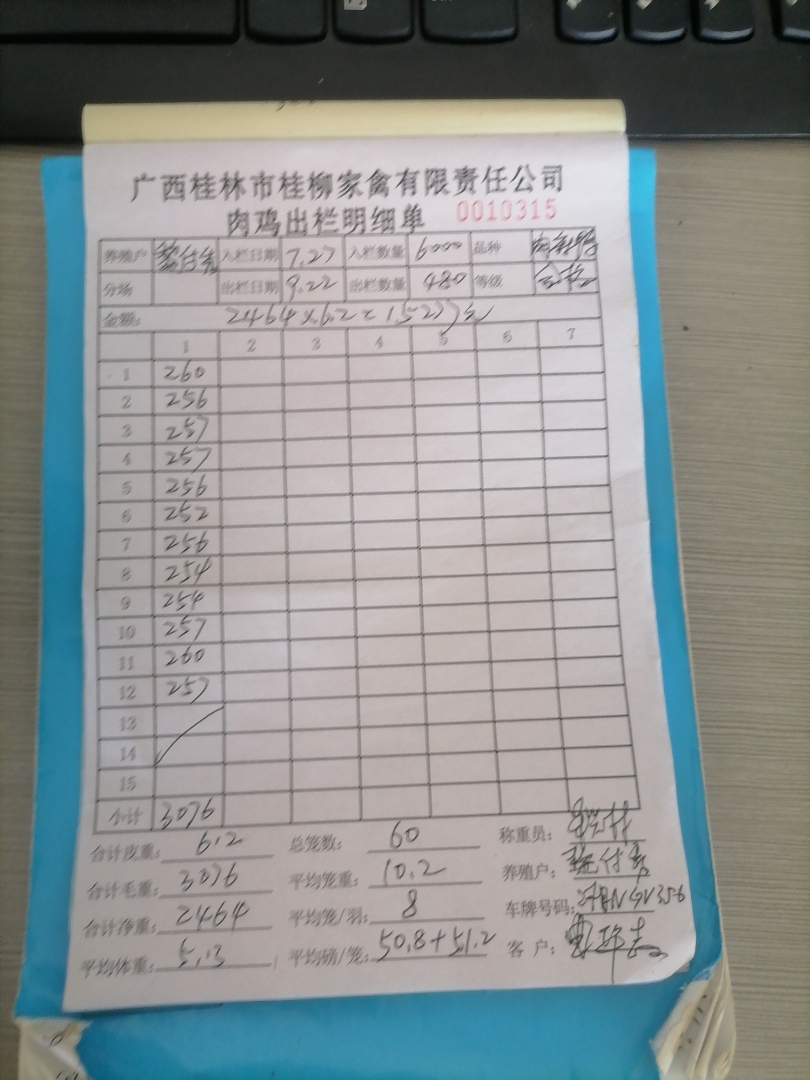 广西桂林市桂柳家禽有限责任公司
肉鸡出栏明细单 0010315
养殖户 入栏日期 7.27 入栏数量 6000 品种
分场 出栏日期 9.22 出栏数量 480 等级 合格
金额: 2464×6.2=15277元
1 2 3 4 5 6 7
1 260
2 256
3 257
4 257
5 256
6 252
7 256
8 254
9 254
10 257
11 260
12 257
13
14
15
小计 3076
合计皮重: 612 总笼数: 60 称重员:
合计毛重: 3076 平均笼重: 10.2 养殖户:
合计净重: 2464 平均笼/羽: 8 车牌号码:
平均体重: 5.13 平均磅/笼: 50.8+51.2 客户: